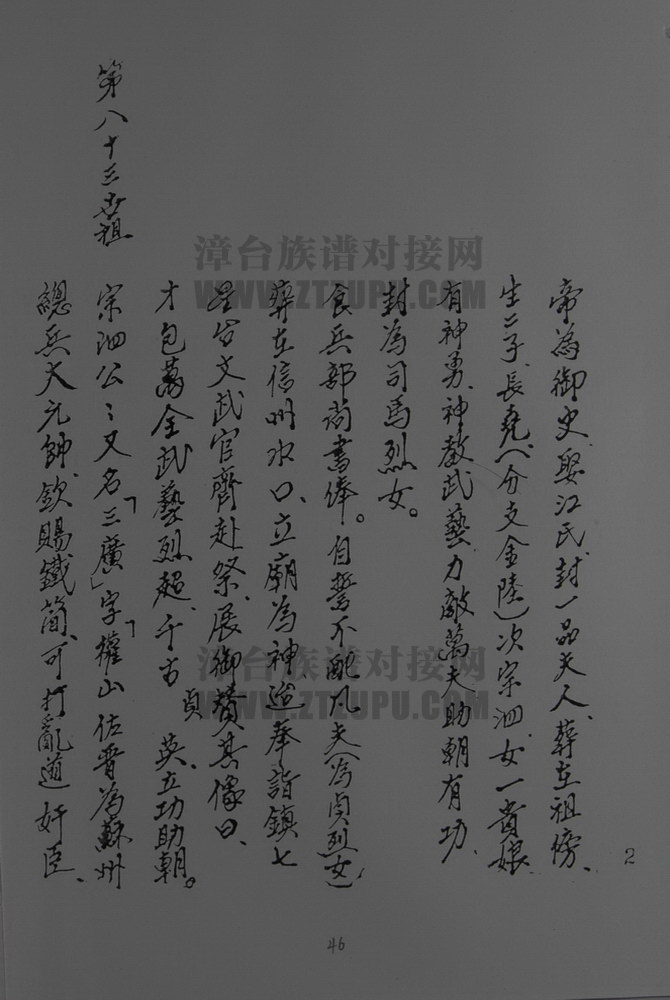 帝為御史、娶江氏封一品夫人、葬在祖傍、
生二子、長堯(分支金陸)次宗泗、女一貴娘
有神勇、神教武藝力敵萬夫助朝有功、
封為司馬烈女。
食兵部尚書俸。自誓不配凡夫(為貞烈女)
葬在信州水口、立廟為神、迨奉詣鎮七
星台文武官齊赴祭、展御贊其像曰、
才包萬全武藝烈超、千古貞英、立功助朝。
第八十三世祖
宗泗公々又名「三廣」字「權山佐晋為蘇州
總兵大元帥、欽賜鐵簡、可打亂道奸臣、
2
46
漳台族谱对接网
WWW.ZTZUPU.COM
漳台族谱对接网
WWW.ZTZUPU.COM